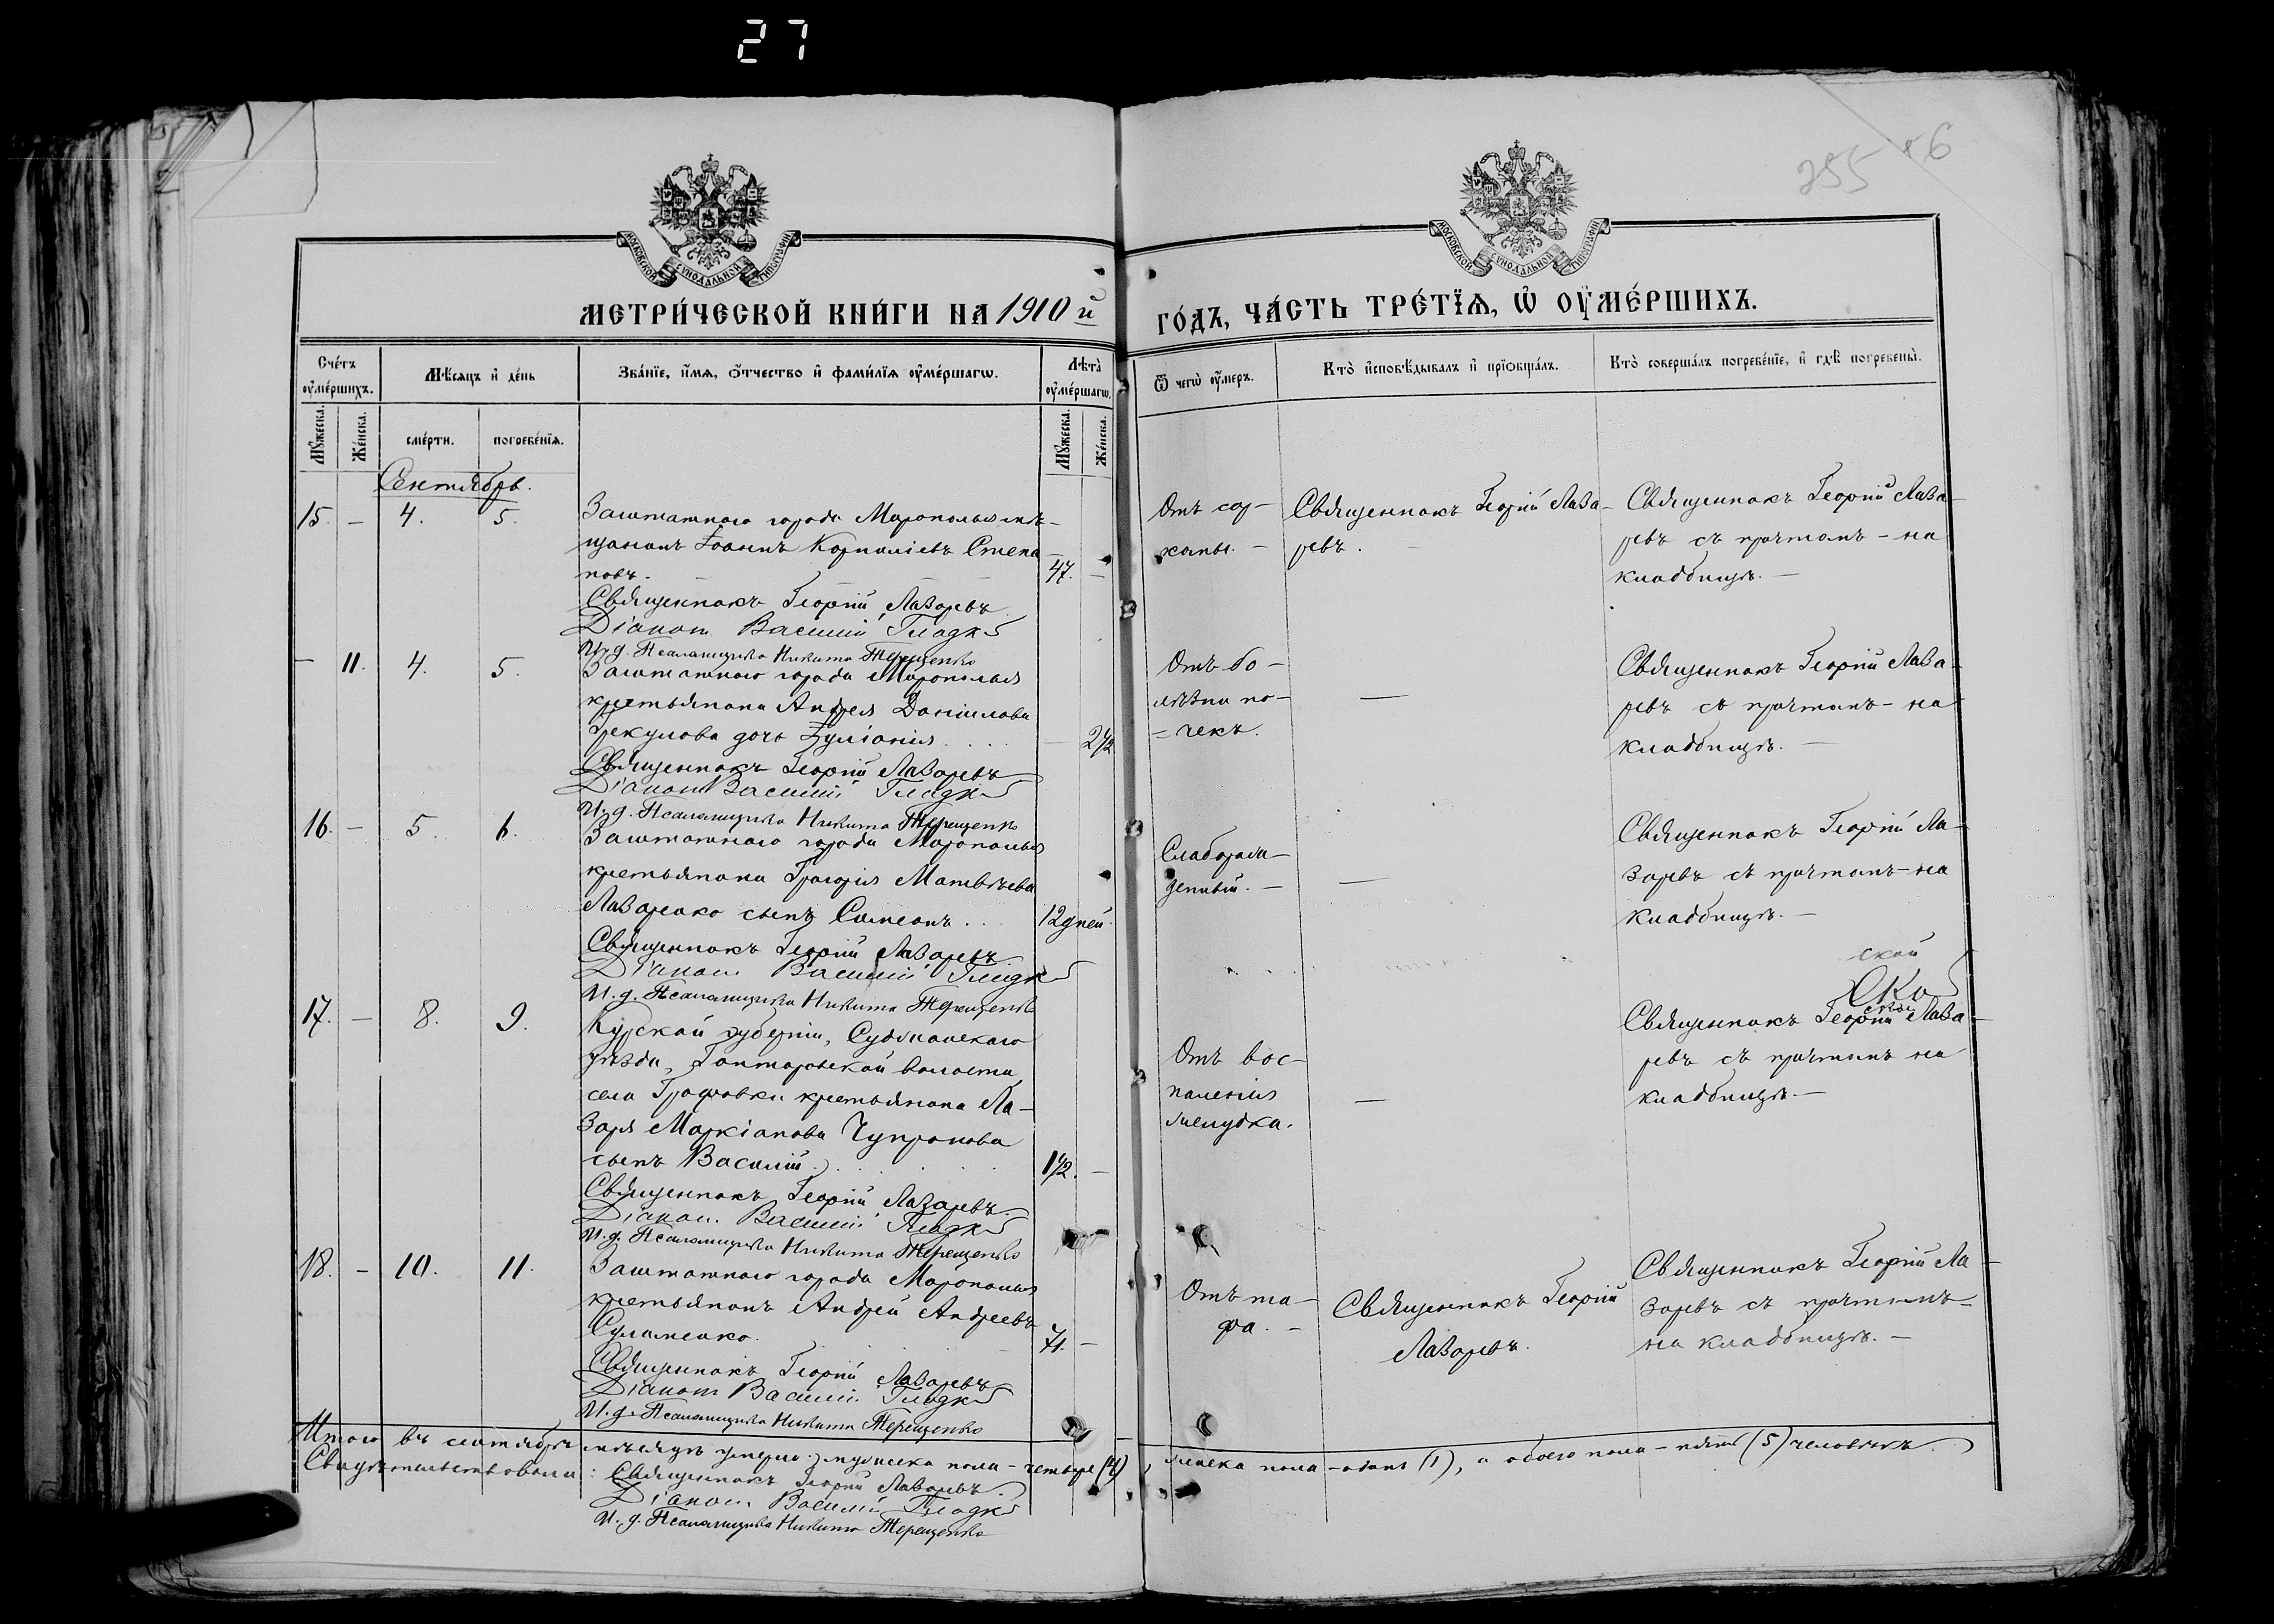 27
255
МОСКОВСКОЙ СѴНОДАЛЬНОЙ ТИПОГРАФІИ
МОСКОВСКОЙ СѴНОДАЛЬНОЙ ТИПОГРАФІИ
МЕТРИ́ЧЕСКОЙ КНИ́ГИ НА 1910 й ГО́ДЪ, ЧА́СТЬ ТРЕ́ТЇѦ, Ѡ҆ ОУ҆МЕ́РШИХЪ.
Сче́тъ оу҆ме́ршихъ.
Мѣ́сяцъ и҆ де́нь
Зва́нїе, и҆́мѧ, ѻ҆́тчество и҆ фами́лїѧ оу҆ме́ршагѡ.
Лѣ́та оу҆ме́ршагѡ.
Ѿ чегѡ̀ оу҆́меръ.
Кто̀ и҆сповѣ́дывалъ и҆ прїѻбща́лъ.
Кто̀ соверша́лъ погребе́нїе, и҆ гдѣ̀ погребены̀.
Мꙋ́жеска.
Же́нска.
сме́рти.
погребе́нїѧ.
Мꙋ́жеска.
Же́нска.
Сентябрь.
15. – 4. 5.
Заштатнаго города Мирополья мѣ-
щанинъ Іоаннъ Корниліевъ Степа-
новъ.
47. –
Священникъ Георгій Лазаревъ
Діаконъ Василій Гладкій
И. д. Псаломщика Никита Терещенко
Священникъ Георгій Лаза-
ревъ.
Священникъ Георгій Лаза-
ревъ съ причтомъ - на
кладбищѣ. –
– 11. 4. 5.
Заштатнаго города Мирополья
крестьянина Андрея Даніилова
дочь Іуліанія
– 2½
Священникъ Георгій Лазаревъ
Діаконъ Василій Гладкій
И. д. Псаломщика Никита Терещенко
Отъ бо-
лѣзни по-
= чекъ.
–
Священникъ Георгій Лаза-
ревъ съ причтомъ - на
кладбищѣ. –
16. – 5. 6.
Заштатнаго города Мирополья
крестьянина Григорія Матвѣева
Лазаренко сынъ Симеонъ . . .
12 дней.
Священникъ Георгій Лазаревъ
Діаконъ Василій Гладкій
И. д. Псаломщика Никита Терещенко
Слаборож-
денный. –
–
Священникъ Георгій Ла-
заревъ съ причтомъ - на
кладбищѣ. –
ской
17. – 8. 9.
Курской губерніи, Суджанскаго
уѣзда, волости,
села Графовки крестьянина Ла-
заря Маркіанова Чупронова
сынъ Василій
1½. –
Священникъ Георгій Лазаревъ
Діаконъ Василій Гладкій
И. д. Псаломщика Никита Терещенко
Отъ вос-
паленія
желудка.
–
Священникъ Георгій Лаза-
ревъ съ причтомъ на
кладбищѣ. –
18. – 10. 11.
Заштатнаго города Мирополья
крестьянинъ Андрей Андреевъ
71. –
Священникъ Георгій Лазаревъ
Діаконъ Василій Гладкій
И. д. Псаломщика Никита Терещенко
Отъ ти-
фа. –
Священникъ Георгій
Лазаревъ.
Священникъ Георгій Ла-
заревъ съ причтомъ -
на кладбищѣ. –
Итого въ сентябрѣ мѣсяцѣ умерло: мужеска пола - четыре (4), женска пола - одинъ (1), а обоего пола - пять (5) человѣкъ.
Свидѣтельствовали: Священникъ Георгій Лазаревъ.
Діаконъ Василій Гладкій
И. д. Псаломщика Никита Терещенко